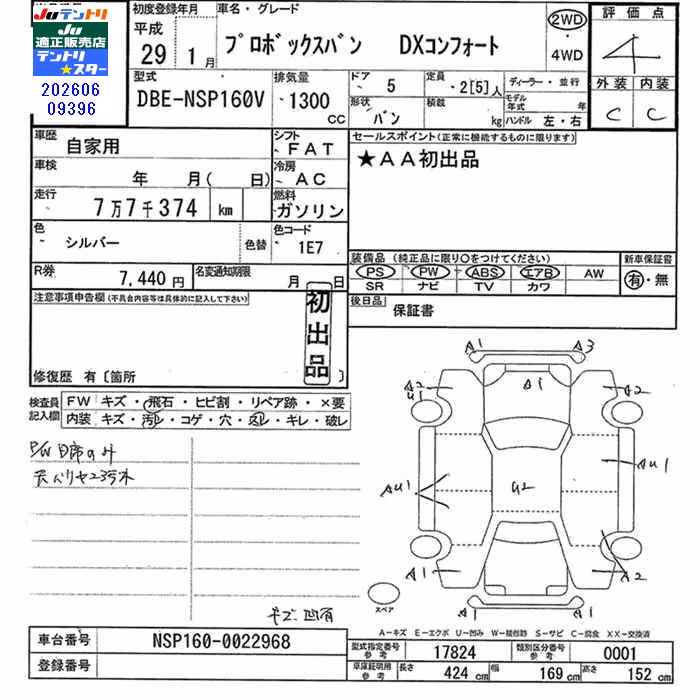 Juテントリ
Ju
適正販売店
テントリ
★スター
202606
09396
初度登録年月
平成
29 1月
車名・グレード
プロボックスバン DXコンフォート
2WD
・
4WD
評価点
4
外装 内装
C C
型式
DBE-NSP160V
排気量
1300
CC
ドア
5
形状
バン
定員
2[5]人
積載
kg
ディーラー・並行
モデル年式 年
ハンドル 左・右
車歴
自家用
シフト
FAT
セールスポイント(正常に機能するものに限ります)
★AA初出品
車検
年 月( 日)
冷房
AC
走行
7万7千374 km
燃料
ガソリン
色
シルバー
色替
色コード
1E7
装備品 (純正品に限り○をつけてください)
PS PW ABS エアB AW
SR ナビ TV カワ
新車保証書
有・無
R券
7,440円
名変通知期限
月 日
後日品
保証書
注意事項申告欄(不具合内容等は具体的に記入して下さい)
初出品
修復歴 有〔箇所
検査員記入欄
FW キズ・飛石・ヒビ割・リペア跡・×要
内装 キズ・汚レ・コゲ・穴・返レ・キレ・破レ
P/W D席のみ
キズ 凹有
A1 A3
A2
U1
A1
A2
AU1
U2
AU1
A1
A2
A1 A1
スペア
A-キズ E-エクボ U-凹み W-補修跡 S-サビ C-腐食 XX-交換済
車台番号
NSP160-0022968
登録番号
型式指定番号
参考
17824
類別区分番号
参考
0001
車庫証明用
参考
長さ
424 cm
幅
169 cm
高さ
152 cm